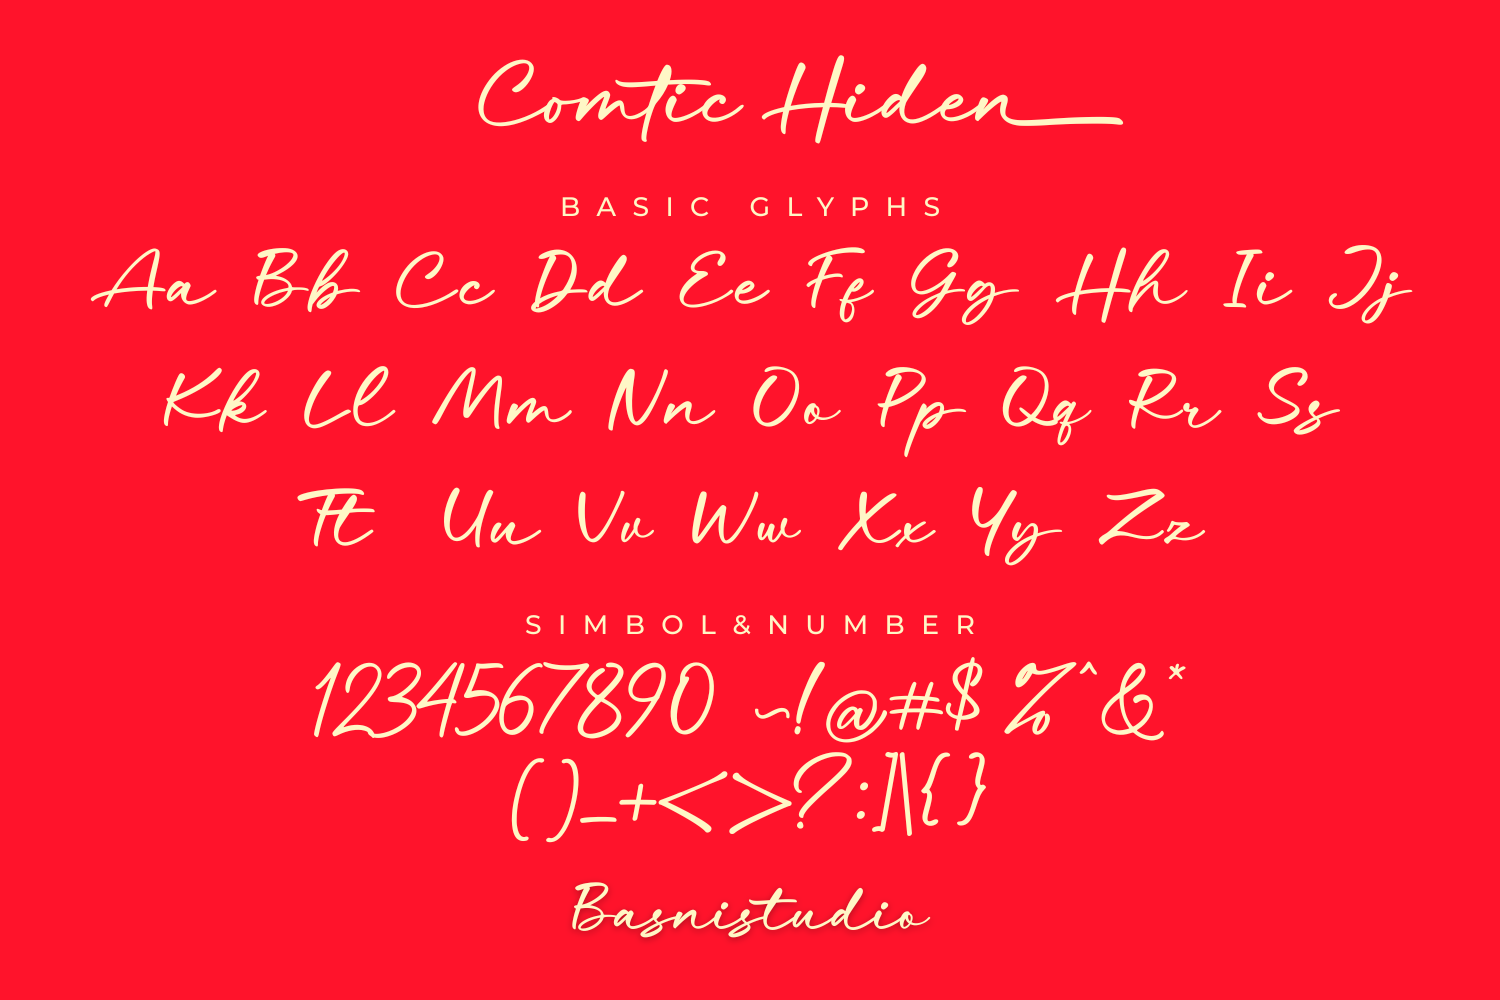 Comtic Hiden
BASIC GLYPHS
Aa Bb Cc Dd Ee Ff Gg Hh Ii Jj
Kk Ll Mm Nn Oo Pp Qq Rr Ss
Tt Uu Vv Ww Xx Yy Zz
SIMBOL&NUMBER
1234567890 ~!@#$%^&*
()_+<>?:]\{}
Basnistudio